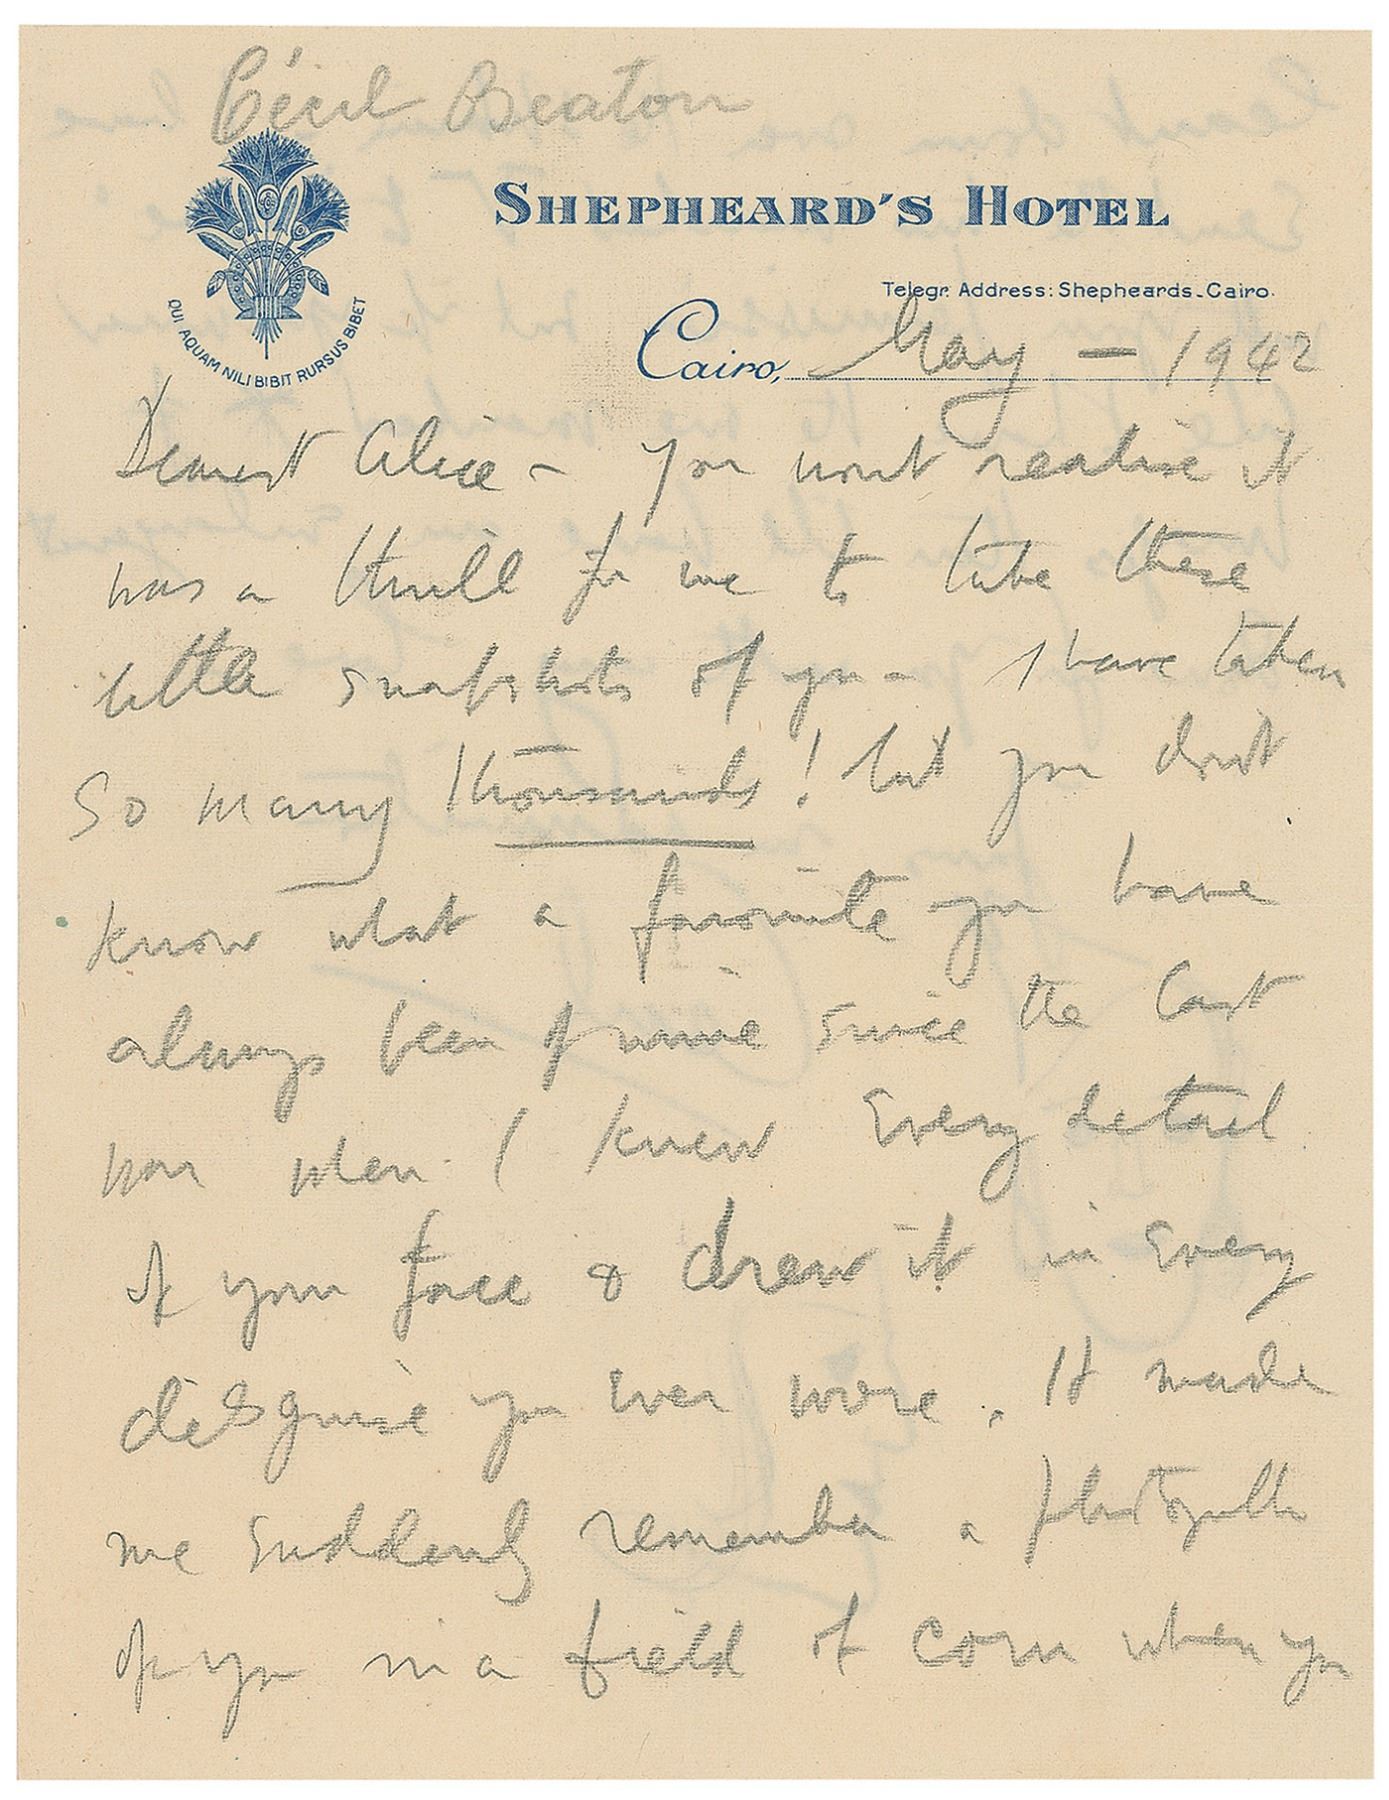 Cécil Beaton
SHEPHEARD'S HOTEL
Telegr. Address: Shepheards-Cairo.
QUI AQUAM NILI BIBIT RURSUS BIBET
Cairo, May – 1942
Dearest Alice – You won't realise it
was a thrill for me to take these
little snapshots of you – I have taken
so many thousands! but you don't
know what a favourite you have
always been of mine since the last
war when I knew every detail
of your face & drew it in every
disguise you ever wore. It made
me suddenly remember a photograph
of you in a field of corn when you